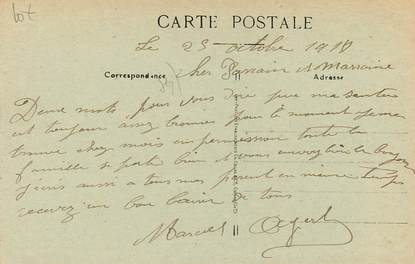 lot
CARTE POSTALE
Le 25 octobre 1918
Correspondance
Adresse
cher Parrain et Marraine
Deux mots pour vous dire que ma santer
est toujour assez bonne pour le moment je me
trouve chez mois en permission toute la
famille se porte bien et vous
aussi a tous mes parent en meme temps
recevez un bon baiser de tous
Marcel